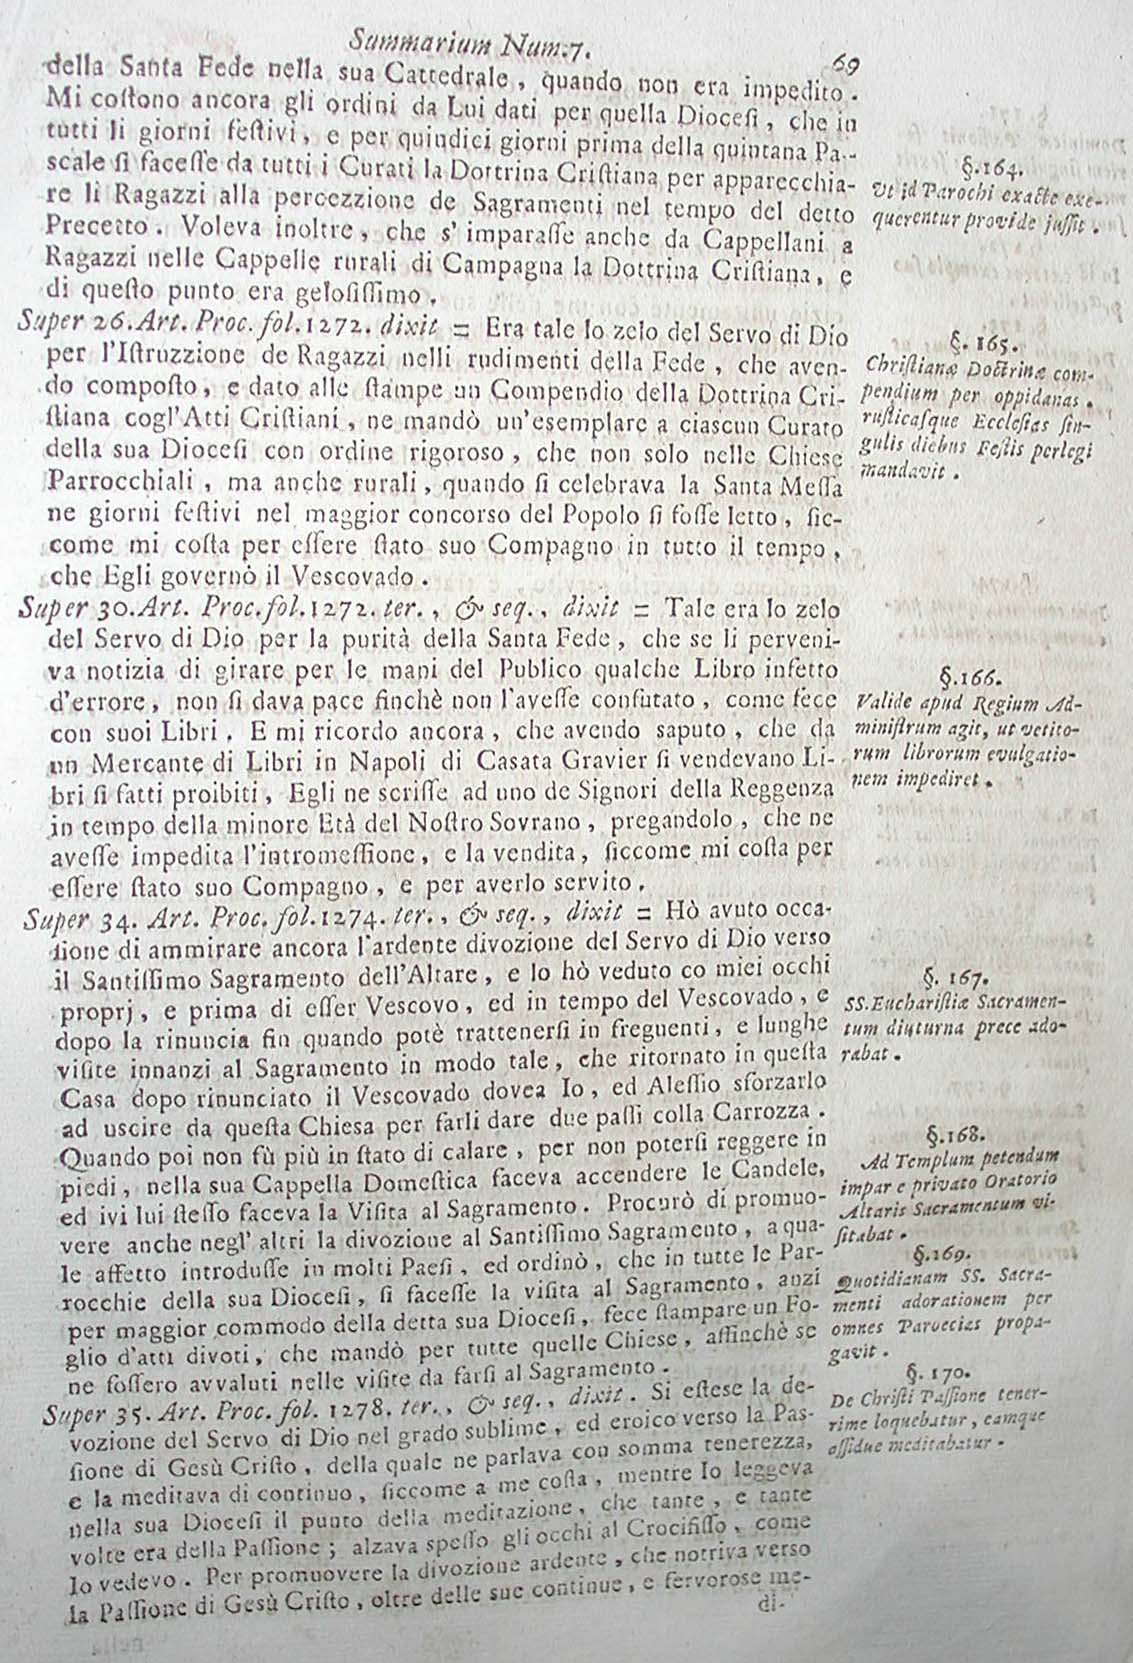 Summarium Num:7.
69
della Santa Fede nella sua Cattedrale, quando non era impedito.
Mi costono ancora gli ordini da Lui dati per quella Diocesi, che in
tutti li giorni festivi, e per quindici giorni prima della quintana Pa-
scale si facesse da tutti i Curati la Dottrina Cristiana per apparecchia-
re li Ragazzi alla percezzione de Sagramenti nel tempo del detto
Precetto. Voleva inoltre, che s' imparasse anche da Cappellani a
Ragazzi nelle Cappelle rurali di Campagna la Dottrina Cristiana, e
di questo punto era gelosissimo.
§.164.
Ut id Parochi exacte exe-
querentur provide jussit.
Super 26. Art. Proc. fol. 1272. dixit = Era tale lo zelo del Servo di Dio
per l'Istruzzione de Ragazzi nelli rudimenti della Fede, che aven-
do composto, e dato alle stampe un Compendio della Dottrina Cri-
stiana cogl'Atti Cristiani, ne mandò un'esemplare a ciascun Curato
della sua Diocesi con ordine rigoroso, che non solo nelle Chiese
Parrocchiali, ma anche rurali, quando si celebrava la Santa Messa
ne giorni festivi nel maggior concorso del Popolo si fosse letto, sic-
come mi costa per essere stato suo Compagno in tutto il tempo,
che Egli governò il Vescovado.
§. 165.
Christianæ Doctrinæ com-
pendium per oppidanas,
rusticasque Ecclesias sin-
gulis diebus Festis perlegi
mandavit.
Super 30. Art. Proc. fol. 1272. ter., & seq., dixit = Tale era lo zelo
del Servo di Dio per la purità della Santa Fede, che se li perveni-
va notizia di girare per le mani del Publico qualche Libro infetto
d'errore, non si dava pace finchè non l'avesse confutato, come fece
con suoi Libri. E mi ricordo ancora, che avendo saputo, che da
un Mercante di Libri in Napoli di Casata Gravier si vendevano Li-
bri si fatti proibiti, Egli ne scrisse ad uno de Signori della Reggenza
in tempo della minore Età del Nostro Sovrano, pregandolo, che ne
avesse impedita l'intromessione, e la vendita, siccome mi costa per
essere stato suo Compagno, e per averlo servito.
§.166.
Valide apud Regium Ad-
ministrum agit, ut vetito-
rum librorum evulgatio-
nem impediret.
Super 34. Art. Proc. fol. 1274. ter., & seq., dixit = Hò avuto occa-
sione di ammirare ancora l'ardente divozione del Servo di Dio verso
il Santissimo Sagramento dell'Altare, e lo hò veduto co miei occhi
proprj, e prima di esser Vescovo, ed in tempo del Vescovado, e
dopo la rinuncia fin quando potè trattenersi in freguenti, e lunghe
visite innanzi al Sagramento in modo tale, che ritornato in questa
Casa dopo rinunciato il Vescovado dovea Io, ed Alessio sforzarlo
ad uscire da questa Chiesa per farli dare due passi colla Carrozza.
Quando poi non fù più in stato di calare, per non potersi reggere in
piedi, nella sua Cappella Domestica faceva accendere le Candele,
ed ivi lui stesso faceva la Visita al Sagramento. Procurò di promuo-
vere anche negl' altri la divozione al Santissimo Sagramento, a qua-
le affetto introdusse in molti Paesi, ed ordinò, che in tutte le Par-
rocchie della sua Diocesi, si facesse la visita al Sagramento, anzi
per maggior commodo della detta sua Diocesi, fece stampare un Fo-
glio d'atti divoti, che mandò per tutte quelle Chiese, affinchè se
ne fossero avvaluti nelle visite da farsi al Sagramento.
§. 167.
SS. Eucharistiæ Sacramen-
tum diuturna prece ado-
rabat.
§.168.
Ad Templum petendum
impar e privato Oratorio
Altaris Sacramentum vi-
sitabat.
§.169.
Quotidianam SS. Sacra-
menti adorationem per
omnes Paroecias propa-
gavit.
Super 35. Art. Proc. fol. 1278. ter., & seq., dixit. Si estese la de-
vozione del Servo di Dio nel grado sublime, ed eroico verso la Pas-
sione di Gesù Cristo, della quale ne parlava con somma tenerezza,
e la meditava di continuo, siccome a me costa, mentre Io leggeva
nella sua Diocesi il punto della meditazione, che tante, e tante
volte era della Passione; alzava spesso gli occhi al Crocifisso, come
Io vedevo. Per promuovere la divozione ardente, che notriva verso
la Passione di Gesù Cristo, oltre delle sue continue, e fervorose me-
di-
§. 170.
De Christi Passione tener-
rime loquebatur, eamque
assidue meditabatur.